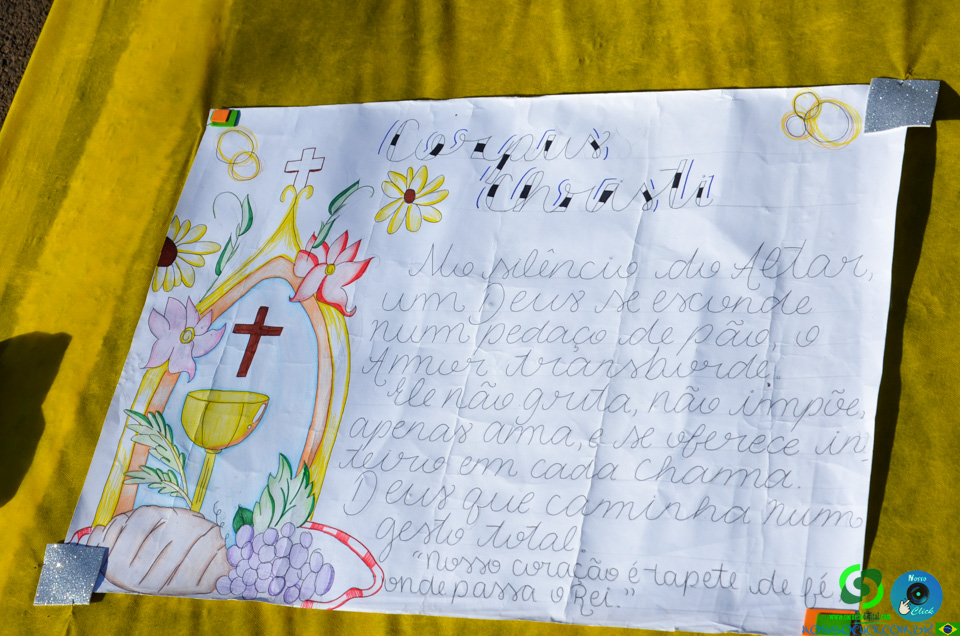 Corpus
Christi
No silêncio do Altar,
um Deus se esconde
num pedaço de pão, o
Amor transborde.
Ele não grita, não impõe,
apenas ama, e se oferece in
teiro em cada chama.
Deus que caminha num
gesto total.
"Nosso coração é tapete de fé
onde passa o Rei."
Nosso
Click